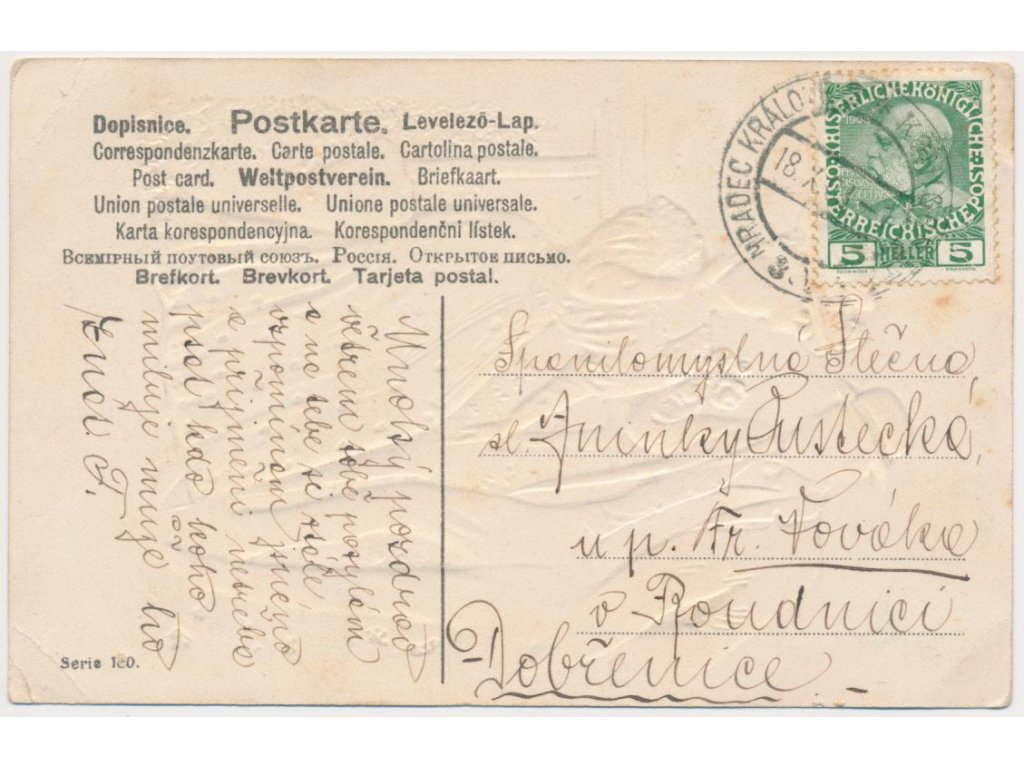 Dopisnice. Postkarte. Levelezö-Lap.
Correspondenzkarte. Carte postale. Cartolina postale.
Post card. Weltpostverein. Briefkaart.
Union postale universelle. Unione postale universale.
Karta korespondencyjna. Korespondenčni lístek.
Всемірный поутовый союзъ. Россія. Открытое письмо.
Brefkort. Brevkort. Tarjeta postal.
HRADEC KRÁLOV
18. X
KAISERLICHE KÖNIGLICHE
ÖSTERREICHISCHE POST
1908
5 HELLER 5
Mnohý pozdrav
větrem tobě posýlám
a na tebe si stále
vzpomínám jméno
a príjmení netreba
psát kdo koho
miluje muže ho
znát. F.
Spanilomyslná Slečna
sl. Aninky Šustecka,
u p. Fr. Nováka
v Roudnici
Dobřenice.
Serie 180.